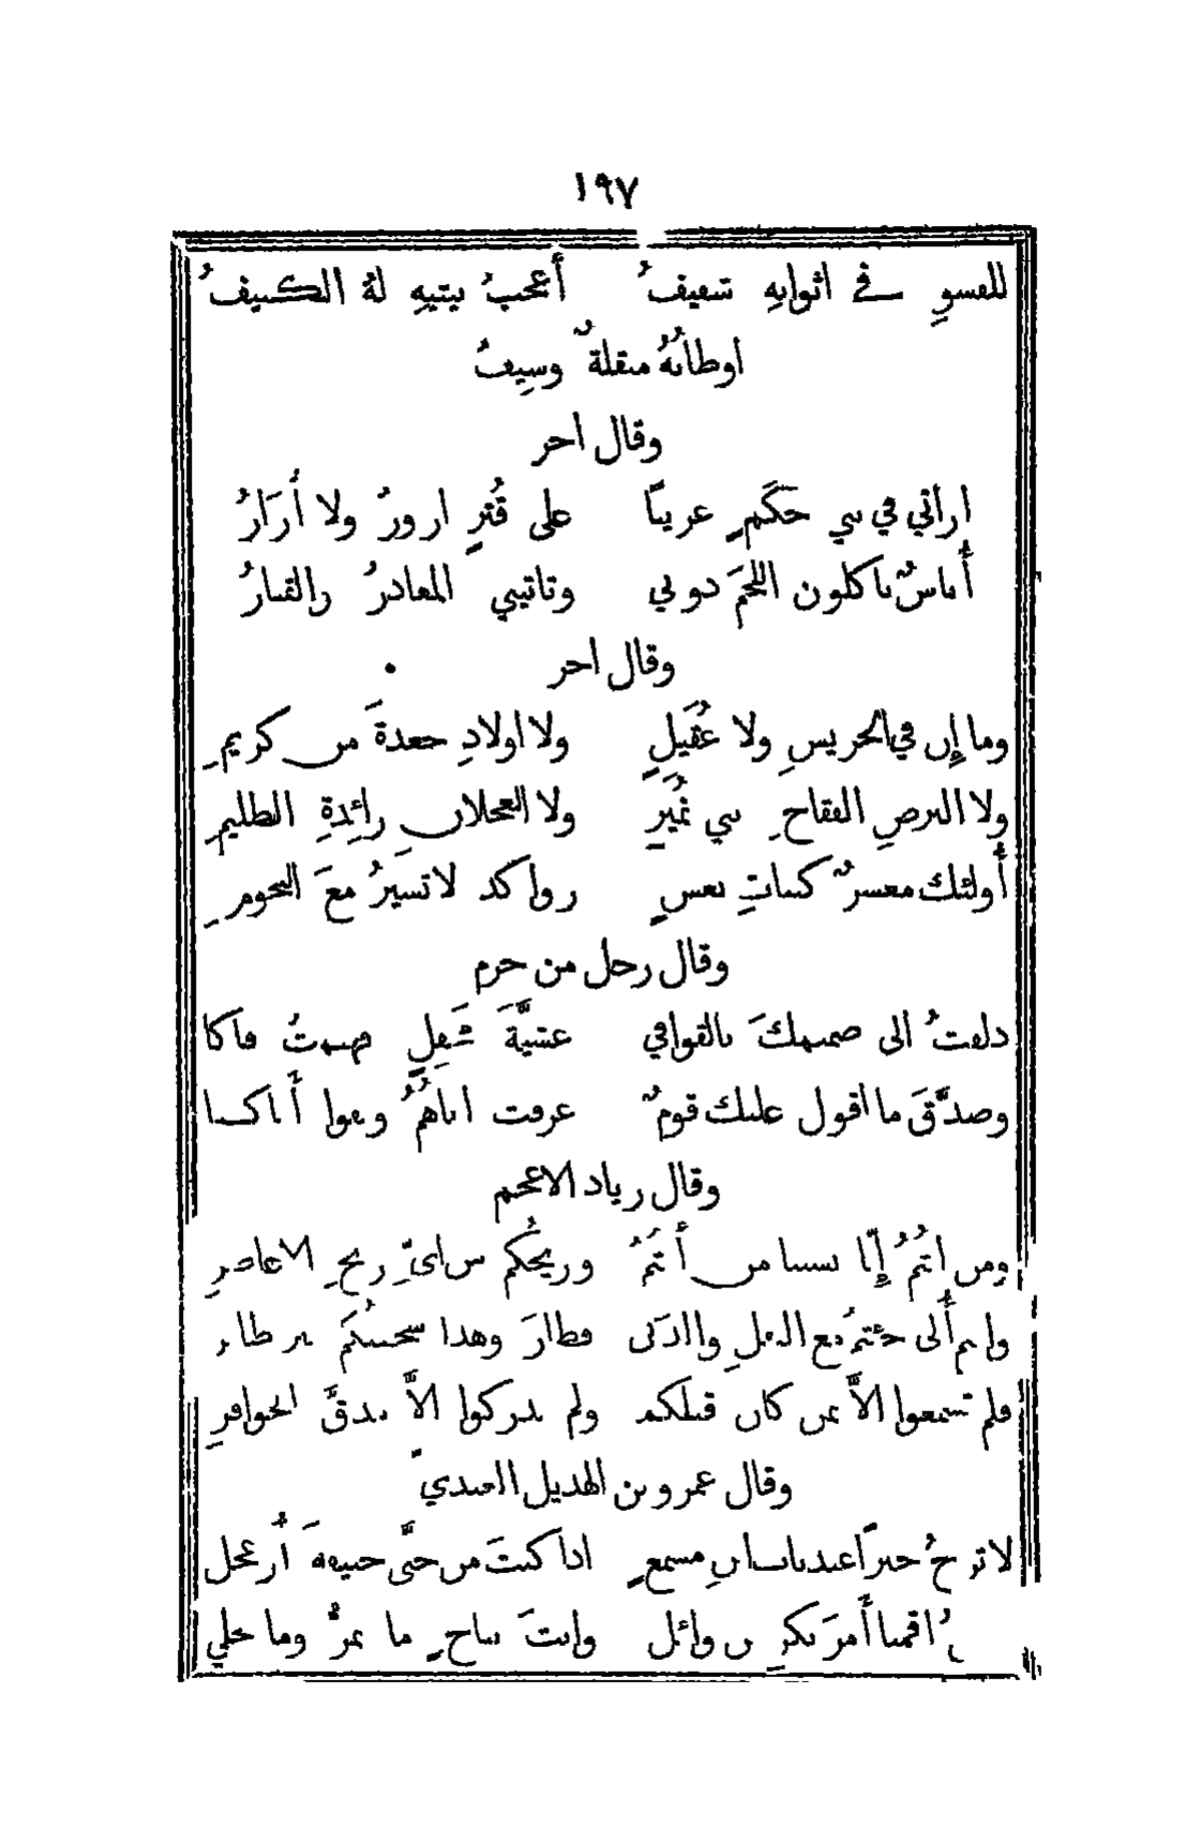 ١٩٧
للفسوِ في اثوابهِ شفيفُ أعجبُ بيتيهِ لهُ الكنيفُ
اوطابُهُ مبقلةٌ وسيفُ
وقال آخر
اراني في بني حَكَمٍ غريبًا على قُترٍ ازورُ ولا أُزَارُ
أُناسٌ يأكلون اللحمَ دوني وتاتيني المعاذرُ والقتارُ
وقال آخر
وما إن في الحريشِ ولا عُقَيلٍ ولا اولادِ جعدةَ من كريمِ
ولا البرصِ الفقاحِ بني نُمَيرٍ ولا العجلانِ زائِدةِ الظليمِ
أُولئك معشرٌ كبناتِ نعشٍ رواكدَ لا تسيرُ معَ النجومِ
وقال رجل من جرم
دلفتُ الى صميمكَ بالقوافي عشيَّةَ مَحفِلٍ فهتمتُ فاكا
وصدَّقَ ما اقول عليك قومٌ عرفت اباهُمُ ونفوا أَباكا
وقال زياد الاعجم
ومن انتُمُ إِنَّا نسينا من أَنتُمُ وريحُكم من ايِّ ريحِ الاعاصرِ
وانتم أُلى جئتُم مع البقلِ والدَبى فطارَ وهذا شخصُكُم غير طائرِ
فلم تسمعوا الاَّ بمن كان قبلكم ولم تدركوا الاَّ مدقَّ الحوافرِ
وقال عمرو بن الهذيل العبديّ
لا ترجُ خيرًا عند باب ابنِ مسمعٍ اذا كنتَ من حيَّي حنيفةَ أَو عجل
اقمنا أَمرَ بكرِ بن وائل وانتَ بثاجٍ ما تمرُّ وما تحلي